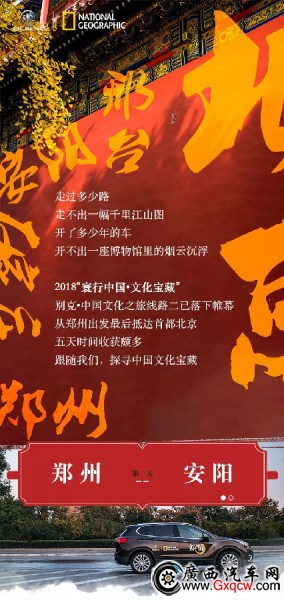 NATIONAL
GEOGRAPHIC
北京
邢台
安阳
郑州
走过多少路
走不出一幅千里江山图
开了多少年的车
开不出一座博物馆里的烟云沉浮
2018“寰行中国·文化宝藏”
别克·中国文化之旅线路二已落下帷幕
从郑州出发最后抵达首都北京
五天时间收获颇多
跟随我们，探寻中国文化宝藏
郑州 第一天 安阳
廣西汽车网
www.Gxqcw.com